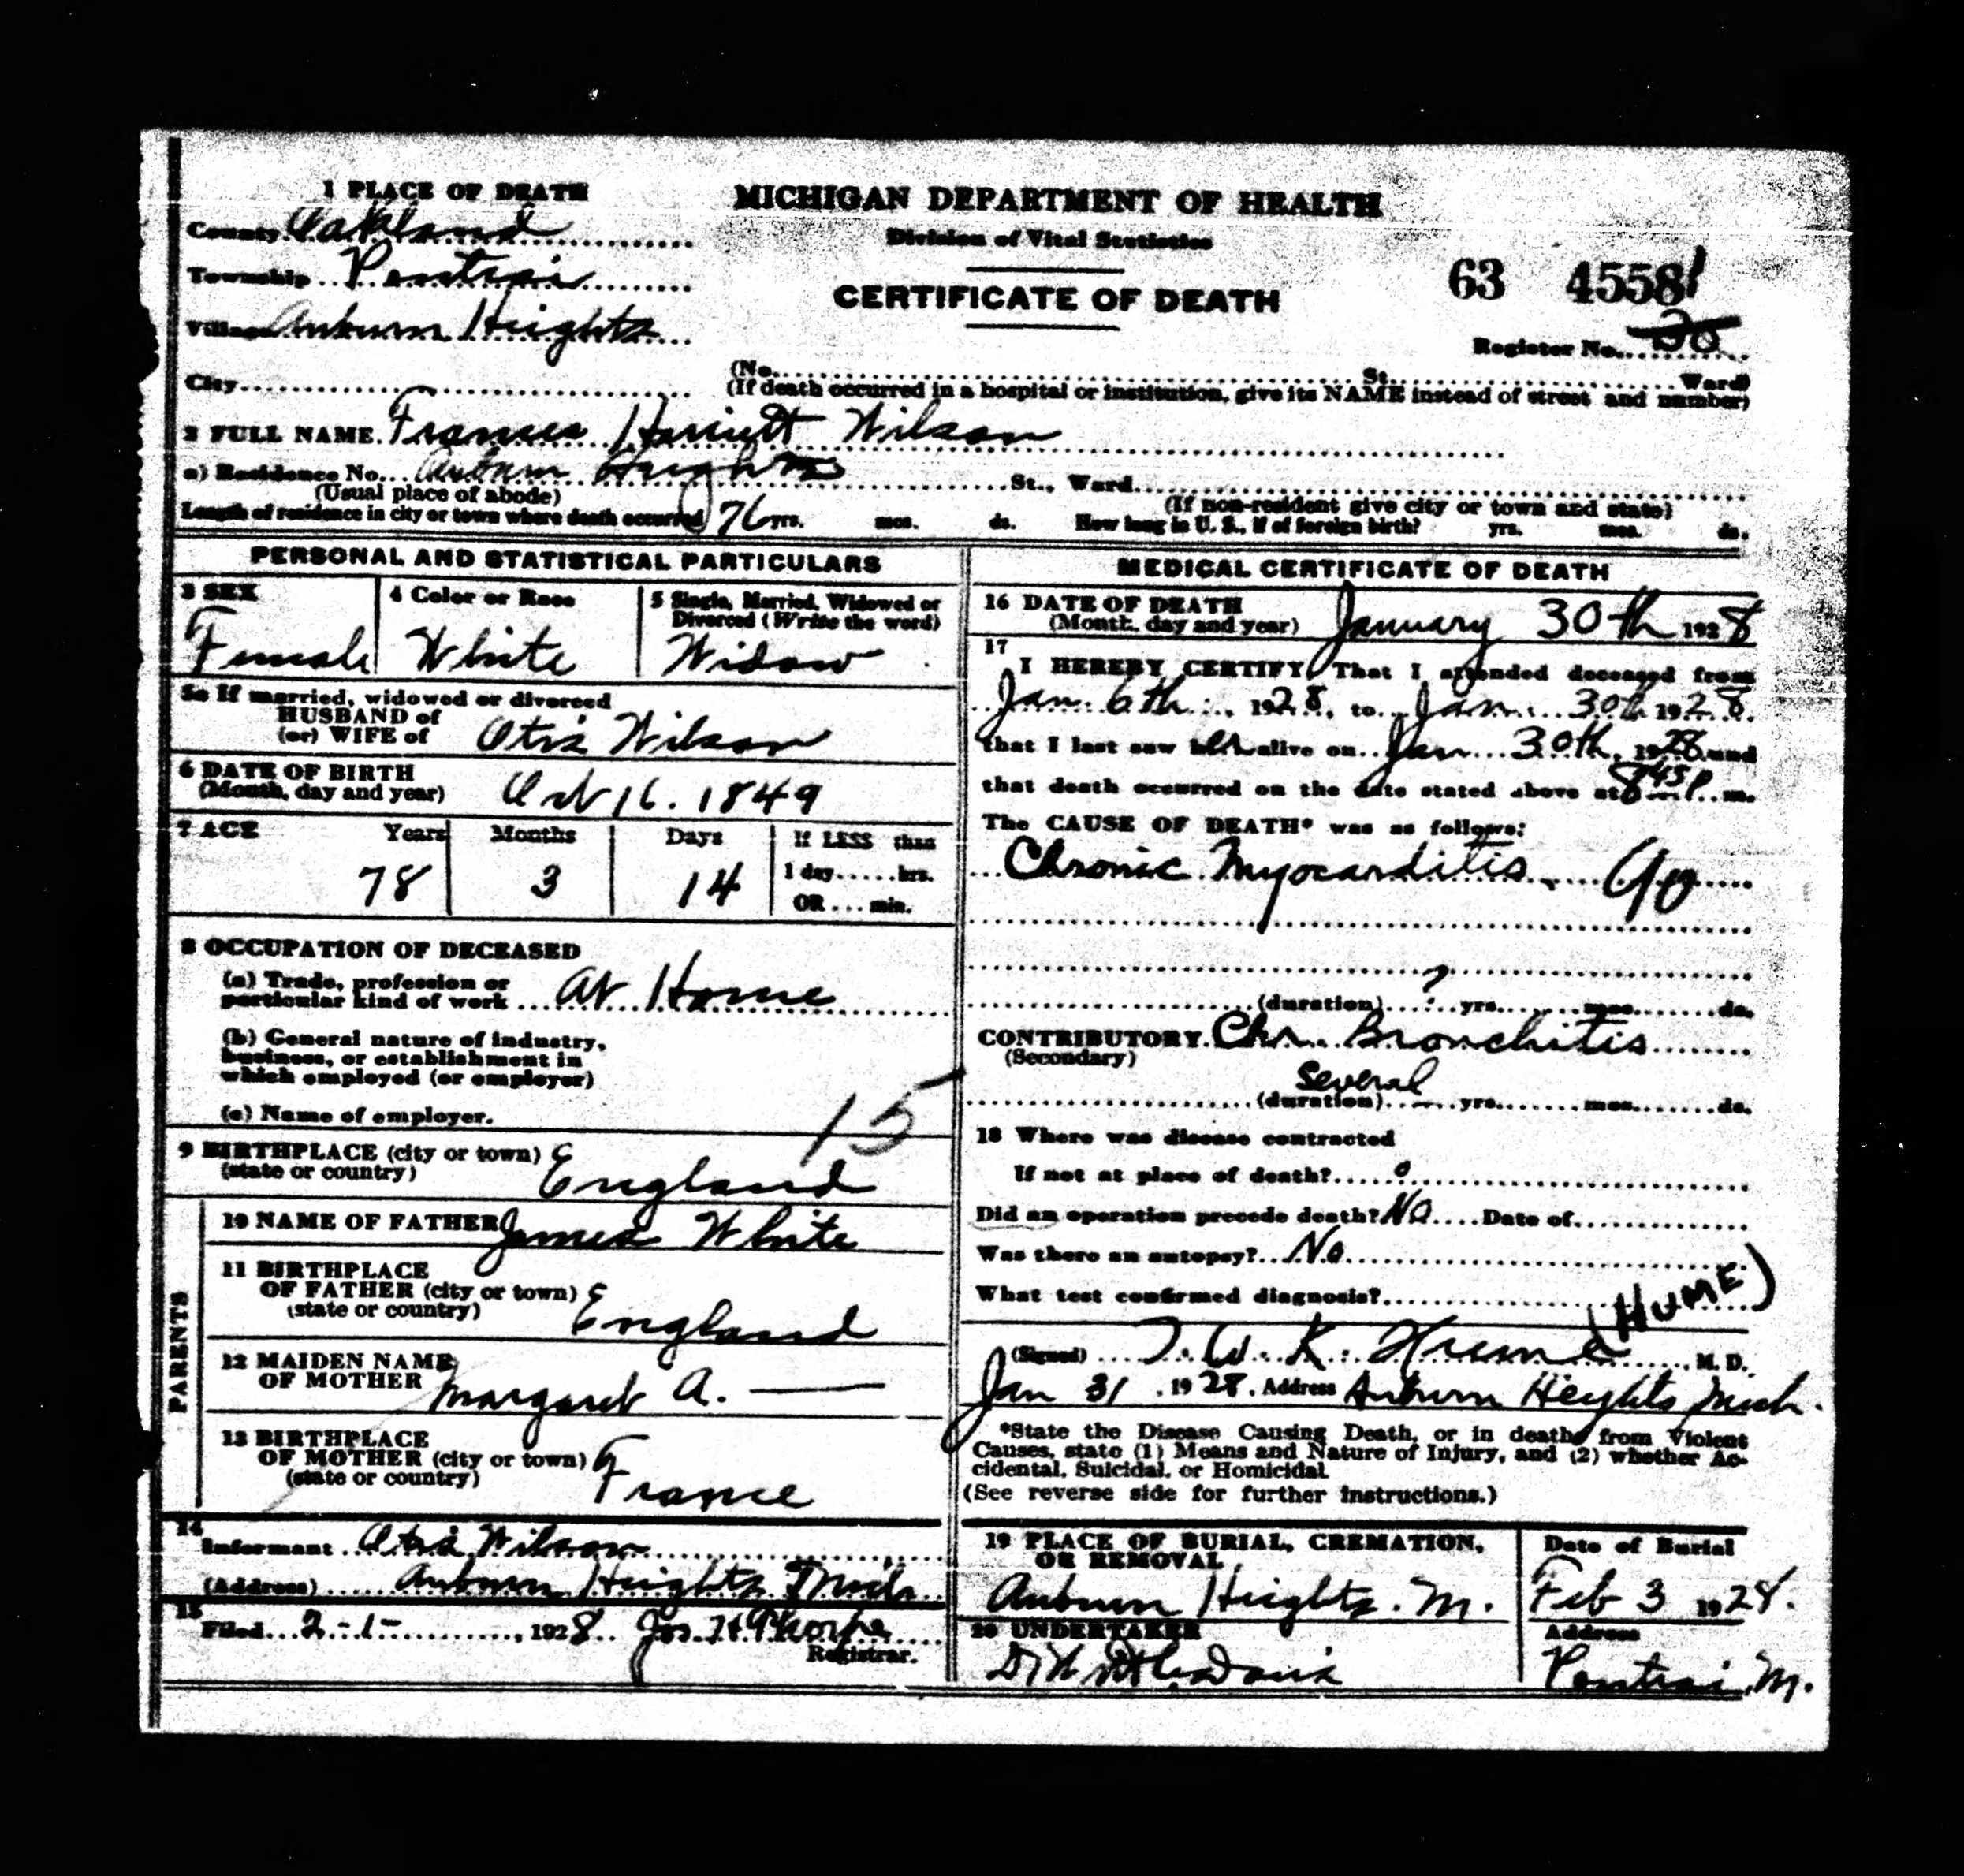 1 PLACE OF DEATH
County Oakland
Township Pontiac
Village Auburn Heights
City
MICHIGAN DEPARTMENT OF HEALTH
Division of Vital Statistics
CERTIFICATE OF DEATH
63 4558
Register No.
(No. St. Ward)
(If death occurred in a hospital or institution, give its NAME instead of street and number)
2 FULL NAME Frances Harriett Wilson
a) Residence No. Auburn Heights St., Ward
(Usual place of abode) (If non-resident give city or town and state)
Length of residence in city or town where death occurred 76 yrs. mos. ds. How long in U. S., if of foreign birth? yrs. mos. ds.
PERSONAL AND STATISTICAL PARTICULARS
3 SEX 4 Color or Race 5 Single, Married, Widowed or
Divorced (Write the word)
Female White Widow
5a If married, widowed or divorced
HUSBAND of
(or) WIFE of Otis Wilson
6 DATE OF BIRTH
(Month, day and year) Oct 16. 1849
7 AGE Years Months Days If LESS than
78 3 14 1 day......hrs.
OR....min.
8 OCCUPATION OF DECEASED
(a) Trade, profession or
particular kind of work At Home
(b) General nature of industry,
business, or establishment in
which employed (or employer)
(c) Name of employer.
15
9 BIRTHPLACE (city or town)
(state or country) England
PARENTS
10 NAME OF FATHER James White
11 BIRTHPLACE
OF FATHER (city or town)
(state or country) England
12 MAIDEN NAME
OF MOTHER Margaret A. —
13 BIRTHPLACE
OF MOTHER (city or town)
(state or country) France
14
Informant Otis Wilson
(Address) Auburn Heights Mich
15
Filed 2-1- 1928 Jos. H. Thorpe
Registrar.
MEDICAL CERTIFICATE OF DEATH
16 DATE OF DEATH
(Month, day and year) January 30th 1928
17
I HEREBY CERTIFY, That I attended deceased from
Jan 6th, 1928, to Jan 30th 1928.
that I last saw her alive on Jan 30th, 1928 and
that death occurred on the date stated above at 8 45 P. m.
The CAUSE OF DEATH* was as follows:
Chronic Myocarditis 90
(duration) ? yrs. mos. ds.
CONTRIBUTORY Chr. Bronchitis
(Secondary)
Several
(duration) yrs. mos. ds.
18 Where was disease contracted
If not at place of death?
Did an operation precede death? No Date of
Was there an autopsy? No
What test confirmed diagnosis?
(HUME)
(Signed) T. W. K. Hume, M. D.
Jan 31, 1928. Address Auburn Heights Mich.
*State the Disease Causing Death, or in deaths from Violent
Causes, state (1) Means and Nature of Injury, and (2) whether Ac-
cidental, Suicidal, or Homicidal.
(See reverse side for further instructions.)
19 PLACE OF BURIAL, CREMATION,
OR REMOVAL
Auburn Heights. M.
Date of Burial
Feb 3 1928.
20 UNDERTAKER
Address
Pontiac, M.